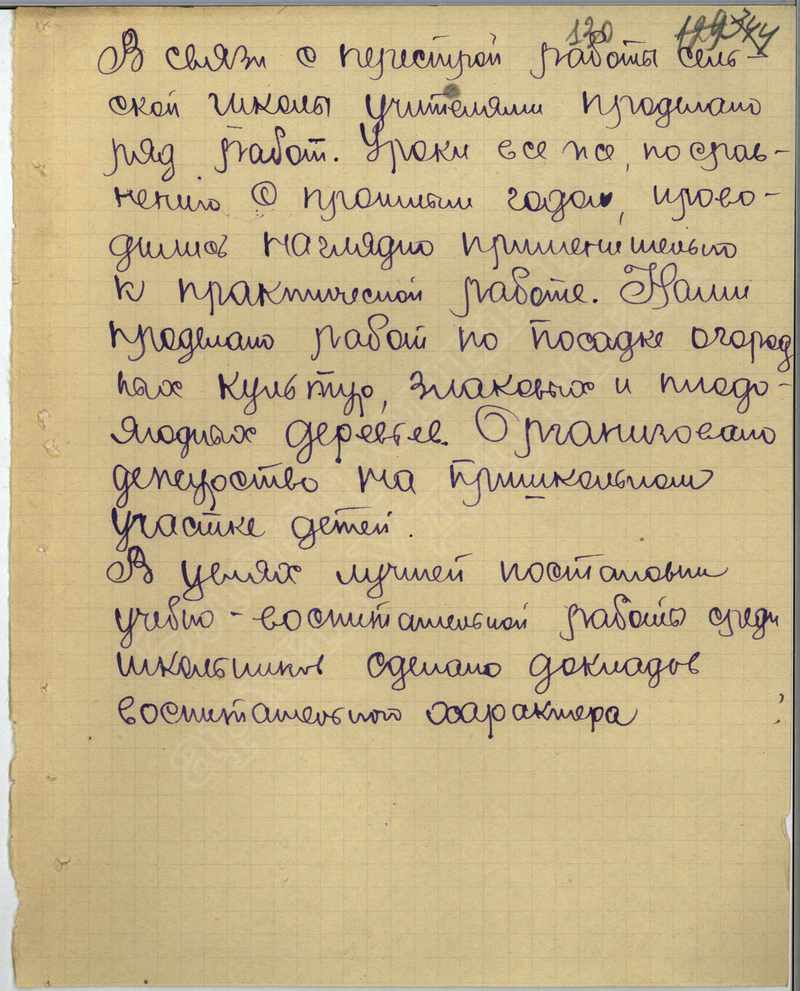 130
В связи с перестрой работы сель-
ской школы учителями проделано
ряд работ. Уроки все же, по срав-
нению с прошлым годом, прово-
дились наглядно применительно
к практической работе. Нами
проделано работ по посадке огород
ных культур, злаковых и плодо-
ягодных деревьев. Организовано
дежурство на пришкольном
участке детей.
В целях лучшей постановки
учебно-воспитательной работы среди
школьников сделано докладов
воспитательного характера